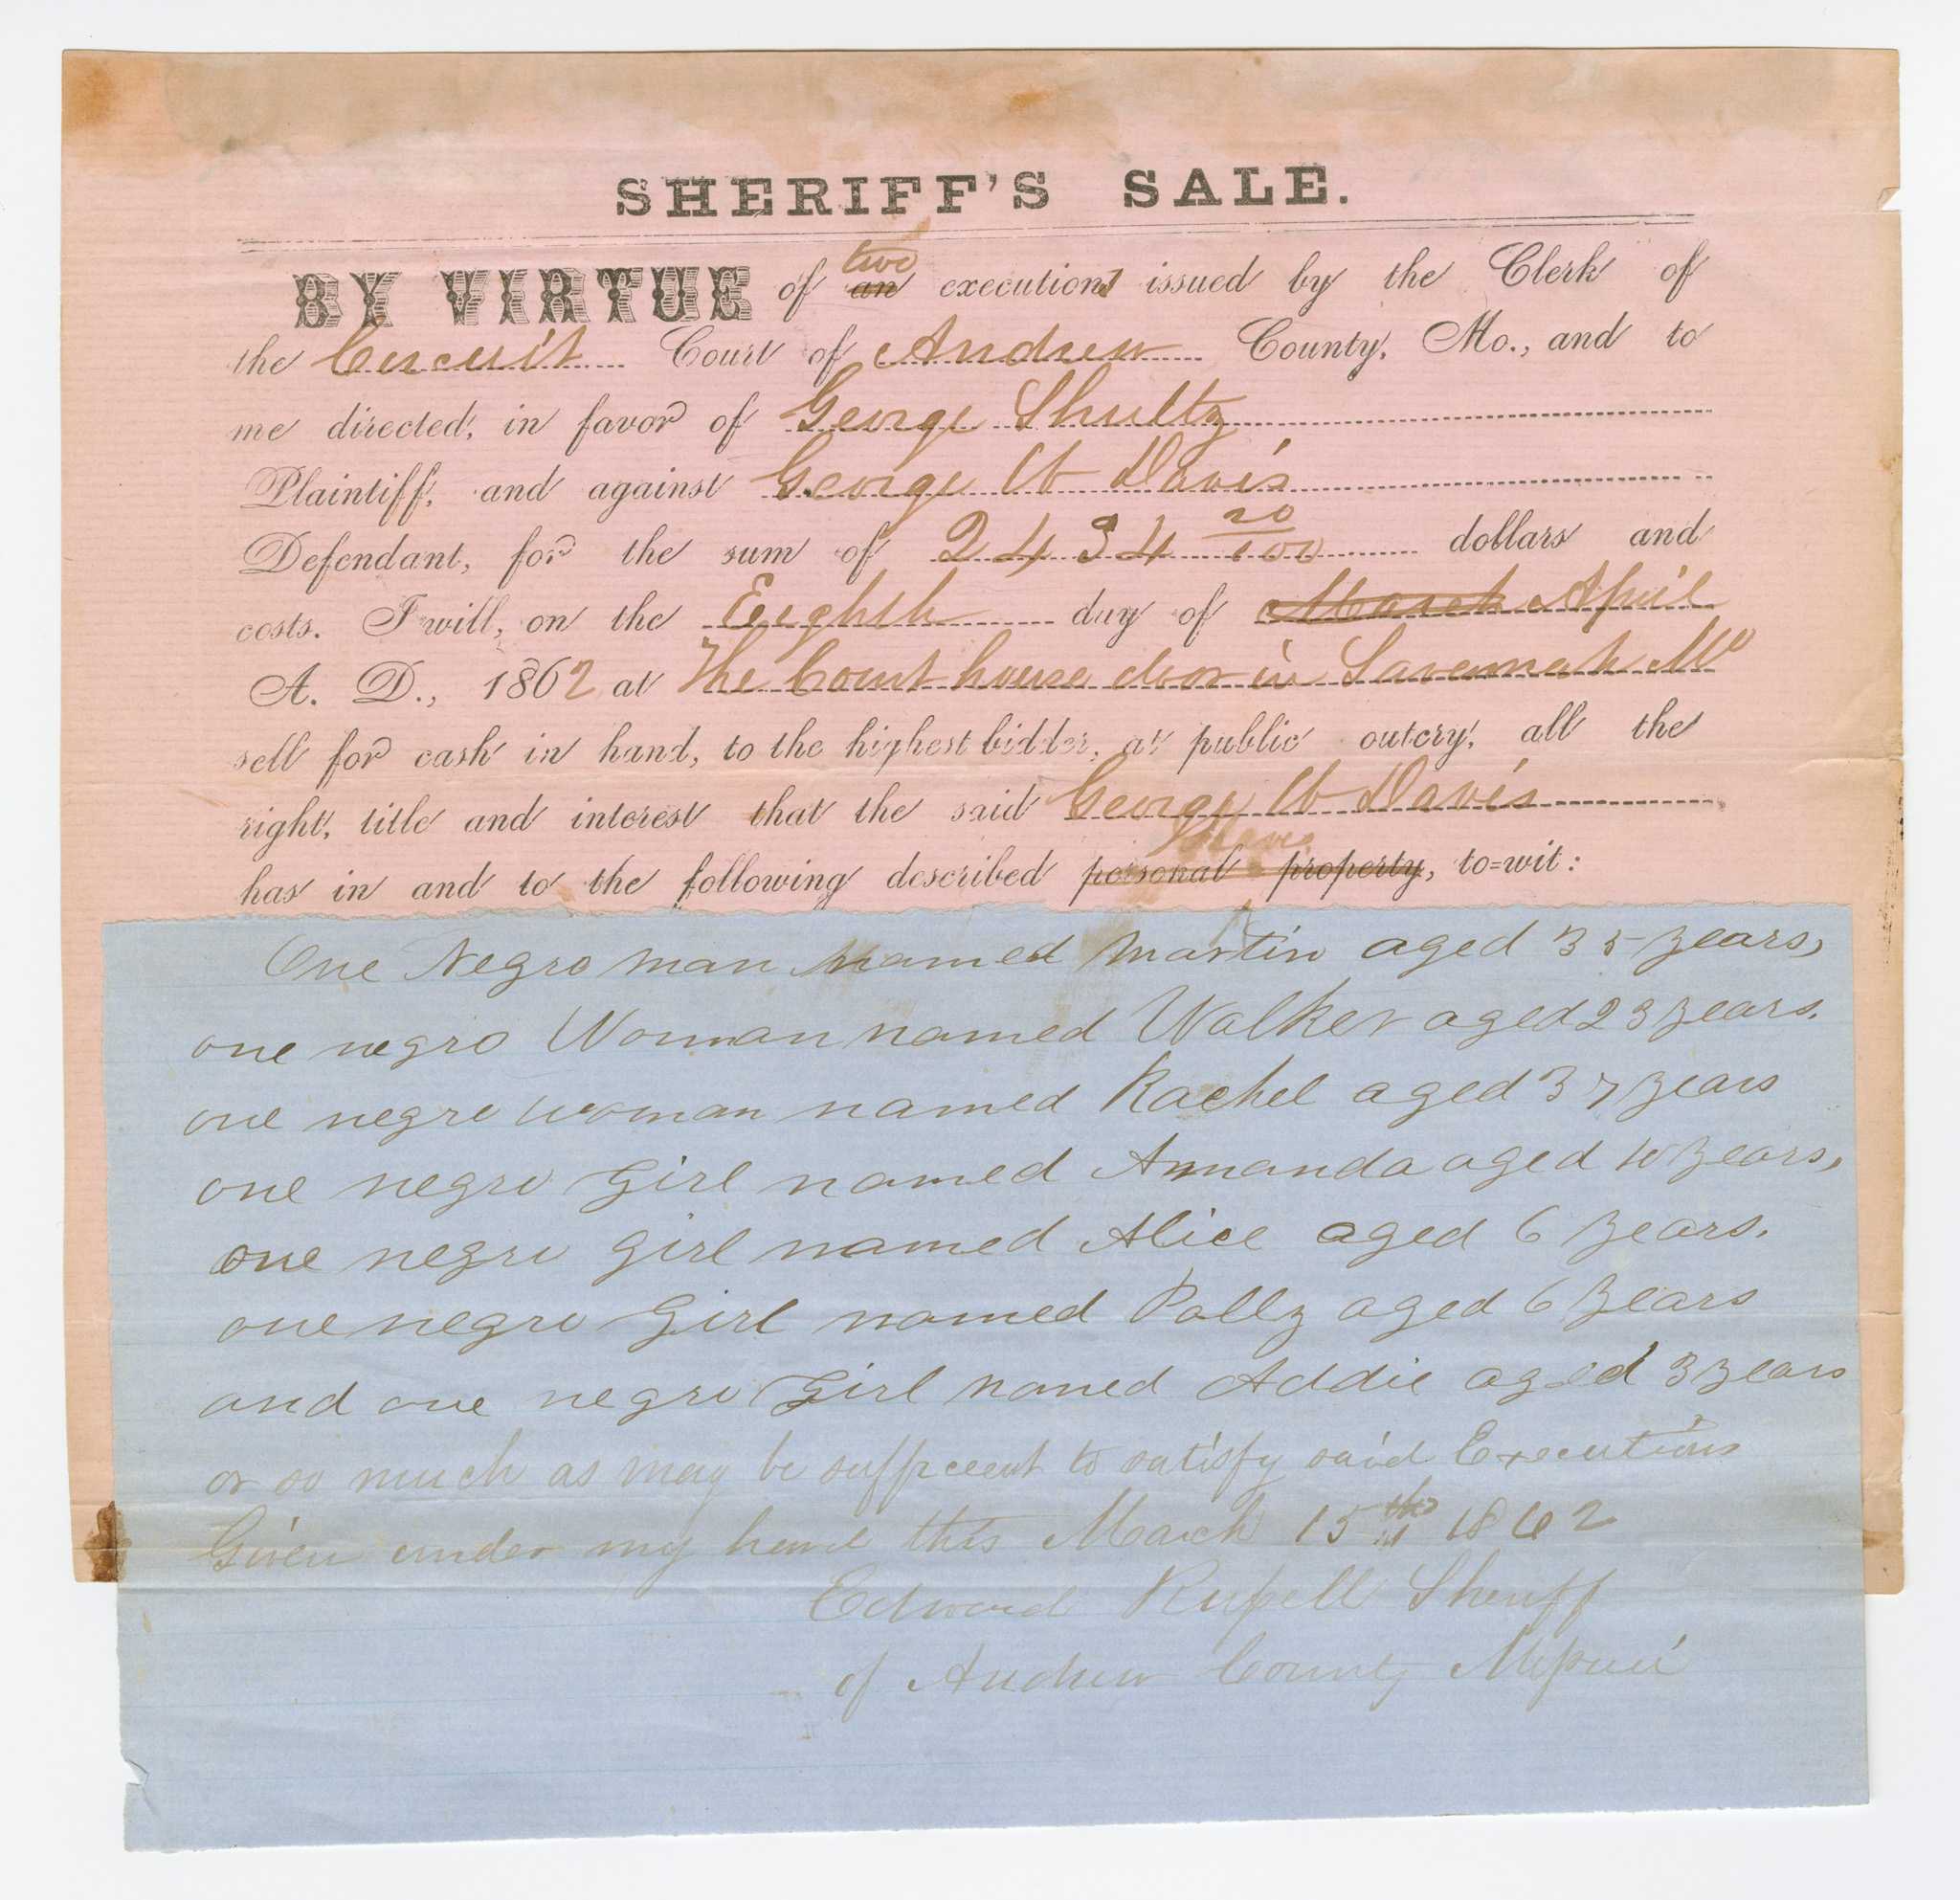 SHERIFF'S SALE.
BY VIRTUE of an two executions issued by the Clerk of
the Circuit Court of Andrew County, Mo., and to
me directed, in favor of George Shultz
Plaintiff, and against George W Davis
Defendant, for the sum of 2434 20/100 dollars and
costs. I will, on the Eighth day of March April
A. D., 1862 at The Court house door in Savannah Mo
sell for cash in hand, to the highest bidder, at public outcry, all the
right, title and interest that the said George W Davis
Slaves
has in and to the following described personal property, to=wit:
One Negro man named Martin aged 35 years,
one negro Woman named Walker aged 23 years.
one negro woman named Rachel aged 37 years
one negro Girl named Amanda aged 10 years,
one negro girl named Alice aged 6 years.
one negro Girl named Polly aged 6 years
and one negro Girl named Addie aged 3 years
or so much as may be sufficient to satisfy said Executions
Given under my hand this March 15th 1862
Edward Russell Sheriff
of Andrew County Missouri